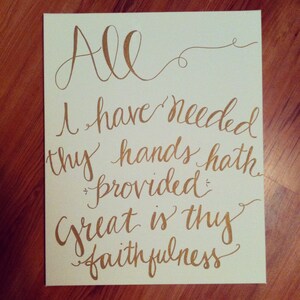 All
I have needed
thy hands hath
provided
Great is thy
faithfulness